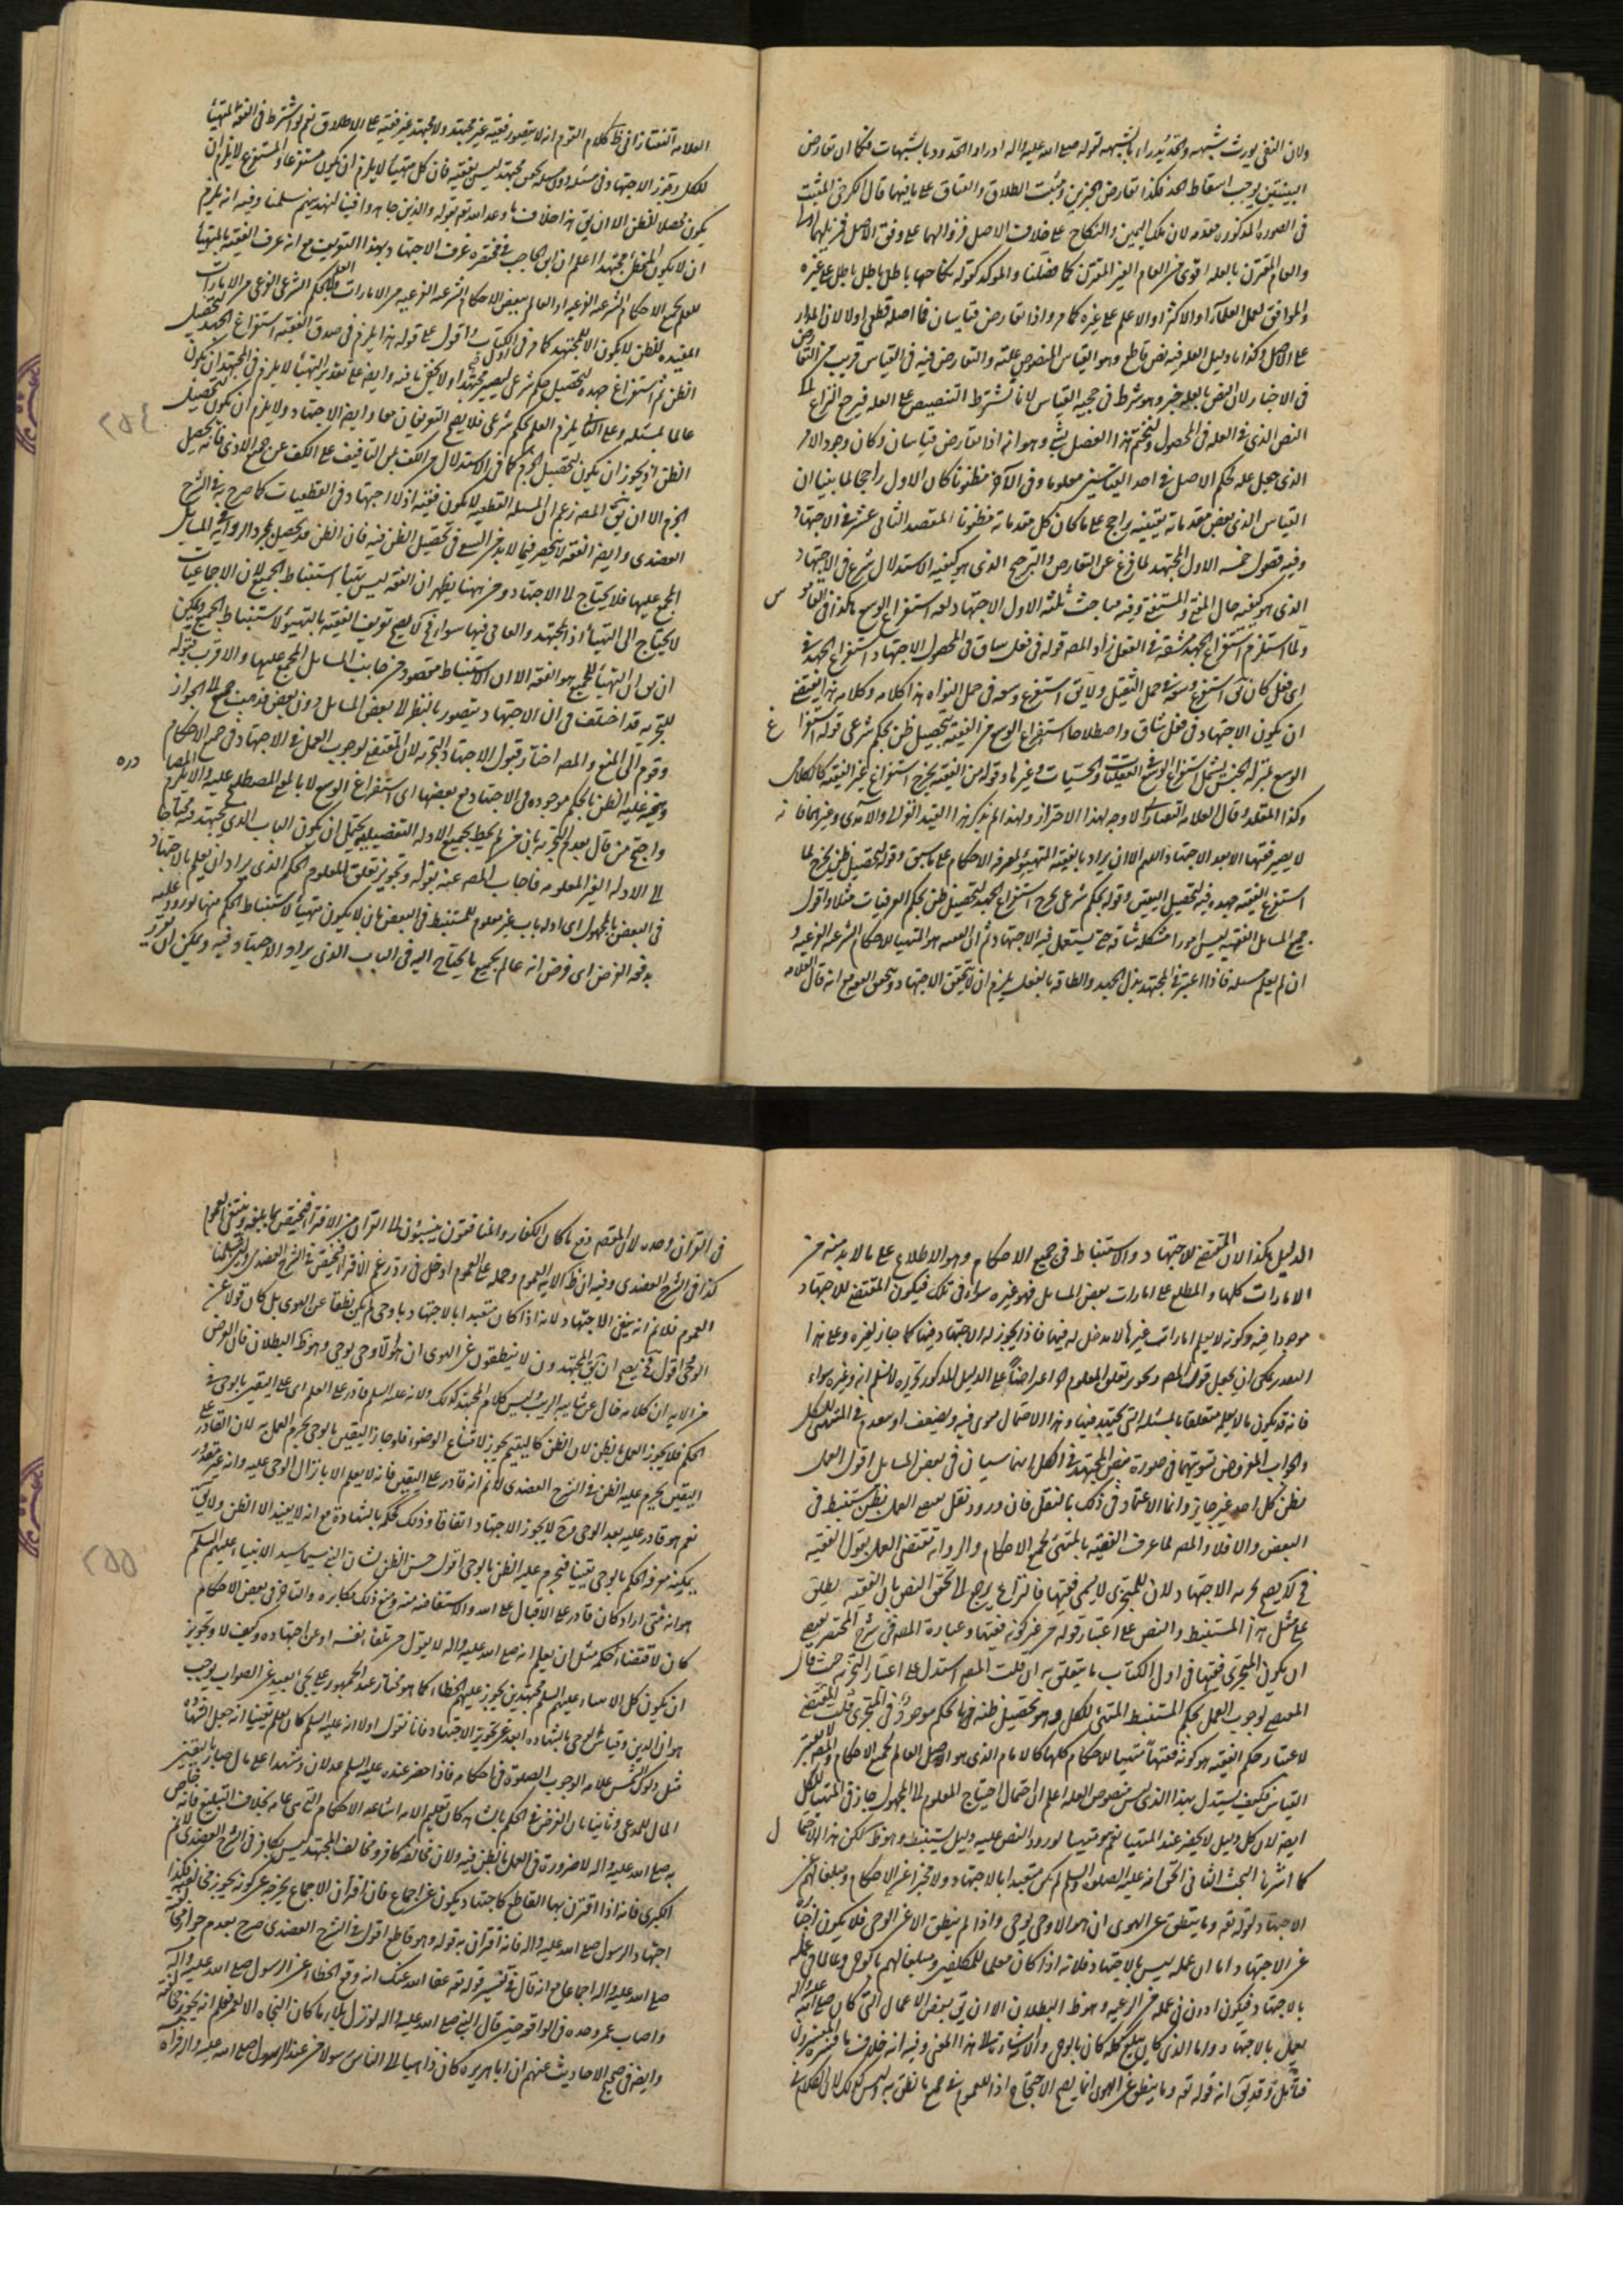 ولان النفى يورث شبهه والحد يُدراء بالشبهه لقوله صلى الله عليه واله ادراوا الحدود بالشبهات فكما ان تعارض
البينتين يوجب اسقاط الحد فكذا تعارض الخبرين ومثبت الطلاق والعتاق على نافيهما قال الكرخى المثبت
فى الصوره المذكوره مقدم لان ملك اليمين والنكاح على خلاف الاصل فزوالهما على وفق الاصل
والعام المقترن بالعله اقوى من العام الغير المقترن كما فصّلنا والموكد كقوله نكاحها باطل باطل باطل على غيره
والموافق لعمل العلماء او الاكثر او الاعلم على غيره كما مر واذا تعارض قياسان فما اصله قطعى اولا
على الاصل وكذا ما دليل العله فيه نص قاطع وهو القياس المنصوص علته والتعارض فيه فى القياس قريب من التعارض
فى الاخبار لان النص بالعله خبر وهو شرط فى حجيه القياس لانا نشترط التنصيص على العله فيرجع النزاع لما
النص الذى فى العله فى المحصول ولنختم هذا الفصل بشئ وهو انه اذا تعارض قياسان وكان وجود الامر
الذى جعل عله لحكم الاصل فى احد القياسين معلوما وفى الآخر مظنونا كان الاول راجحا لما بينا ان
القياس الذى بعض مقدماته يقينيه راجح على ما كان كل مقدماته مظنونا المقصد الثانى عشر فى الاجتهاد
وفيه فصول خمسه الاول المجتهد لما فرغ عن التعارض والترجيح الذى هو كيفيه الاستدلال شرع فى الاجتهاد
الذى هو كيفيه حال المفتى والمستفتى وفيه مباحث ثلثه الاول الاجتهاد لغه استفراغ الوسع هكذا فى القامو س
ولما استلزم استفراغ الجهد مشقه فى الفعل زاد المصه قوله فى فعل شاق فى المحصول الاجتهاد استفراغ الجهد فى
اى فعل كان يقال استفرغ وسعه فى حمل الثقيل ولا يقال استفرغ وسعه فى حمل النواه هذا كلامه وكلامه هذا يقتضى
ان يكون الاجتهاد فى فعل شاق واصطلاحا استفراغ الوسع من الفقيه لتحصيل ظن بحكم شرعى قوله استفرا غ
الوسع بمنزله الجنس يشمل استفراغ الوسع فى العقليات والحسيات وغيرها وقوله من الفقيه يخرج استفراغ غير الفقيه كالكلامى
وكذا المقلد وقال العلامه التفتازانى لا وجه لهذا الاحتراز ولهذا لم يذكر هذا القيد الغزالى والآمدى وغيرهما فا نه
لا يصير فقيها الا بعد الاجتهاد اللهم الا ان يراد بالفقيه المتهيّؤ لمعرفه الاحكام على ما سبق وقوله لتحصيل ظن يخرج لما
استفرغ الفقيه جهده فيه لتحصيل اليقين وقوله بحكم شرعى يخرج استفراغ الجهد لتحصيل ظن بحكم العرفيات مثلا واقول
جميع المسائل الفقهيه ليس امورا مشكله شاقه حتى يستعمل فيه الاجتهاد ثم ان الفقيه هو المتهيأ للاحكام الشرعيه الفرعيه و
ان لم يعلم مسئله فاذا اعتبر فى المجتهد بذل الجهد والطاقه بالفعل يلزم ان لا يتحقق الاجتهاد ويتحقق الفقيه مع انه قال العلامه
العلامه التفتازانى ظ كلام القوم انه لا يتصور فقيه غير مجتهد ولا مجتهد غير فقيه على الاطلاق نعم لو اشترط فى الفقه التهيأ
للكل وجوّز الاجتهاد فى مسئله دون مسئله تحقق مجتهد ليس بفقيه فان كل متهيأ لا يلزم ان يكون مستفرغا والمستفرغ لا يلزم ان
يكون محصلا للظن الا ان يق هذا خلاف ما وعد الله تعه بقوله والذين جاهدوا فينا لنهدينهم سبلنا وفيه انه يلزم
ان لا يكون المخطئ مجتهدا اعلم ان ابن الحاجب فى مختصره عرف الاجتهاد بهذا التعريف مع انه عرف الفقيه بالمتهيأ
للعلم بجميع الاحكام الشرعيه الفرعيه او العالم ببعض الاحكام الشرعيه الفرعيه من الامارات والعلم بالحكم الشرعى الفرعى من الامارات
المفيده للظن لا يكون الا للمجتهد كما مر فى اول الكتاب واقول على قوله هذا يلزم فى صدق الفقيه استفراغ الجهد لتحصيل
الظن ثم استفراغ جهده لتحصيل حكم شرعى ليصير مجتهدا ولا يخفى ما فيه وايضه على تقدير التهيأ لا يلزم فى المجتهد ان يكون
عالما بمسئله وعلى الثانى يلزم العلم بحكم شرعى فلا يصح التعريفان معا وايضه الاجتهاد ولا يلزم ان يكون لتحصيل
الظن اذ يجوز ان يكون لتحصيل الجزم كما فى الاستدلال من الكف عن التأفيف على الكف عن جميع الاذى فانه يحصل
الجزم الا ان يق المصه زعم ان المسئله القطعيه لا يكون فقيه اذ لا اجتهاد فى القطعيات كما صرح به فى الشرح
العضدى وايضه الفقه لا ينحصر فيما لا بد من السعى فى تحصيل الظن فيه فان الظن قد يحصل بمجرد الروايه المسائل
المجمع عليها فلا يحتاج لما الاجتهاد ومن ههنا يظهر ان الفقه ليس بتهيأ استنباط الجميع لان الاجماعيات
لا يحتاج الى التهيأ اذ المجتهد والعامى فيها سواء فح لا يصح تعريف الفقيه بالتهيؤ لاستنباط الجميع ويمكن
ان يق ان التهيأ للجميع هو الفقه الا ان الاستنباط مقصود من جانب المسائل المجمع عليها والاقرب قبوله
للتجزيه قد اختلف فى ان الاجتهاد يتصور بالنظر لا بعض المسائل دون بعض فذهب جمع الى الجواز
وقوم الى المنع والمصه اختار قبول الاجتهاد التجزيه لان المقتضى لوجوب العمل فى الاجتهاد فى جميع الاحكام
وتيجه غلبه الظن بالحكم موجوده فى الاجتهاد مع بعضها اى استفراغ الوسع لا بالمعنى المصطلح عليه والا يلزم المصا دره
واحتج من قال بعدم التجزيه بان من لم يحط بجميع الادله التفصيليه يحتمل ان يكون الباب الذى يجتهد فيه محتاجا
الى الادله الغير المعلومه فاجاب المصه عنه بقوله وتجويز تعلق المعلوم الحكم الذى يراد ان يعلم بالاجتهاد
فى البعض بالمجهول اى ادله باب غير معلوم للمستنبط فى البعض بان لا يكون متهيأ لاستنباط الحكم منها لوروده عليه
يدفعه الفرض اى فرض انه عالم بجميع ما يحتاج اليه فى الباب الذى يراد الاجتهاد فيه ويمكن ان تقرير
٢٥٤
الدليل هكذا لان المقتضى للاجتهاد والاستنباط فى جميع الاحكام وهو الاطلاع على ما لا بد منه من
الامارات كلها والمطلع على امارات بعض المسائل فهو غيره سواء فى تلك فيكون المقتضى للاجتهاد
موجودا فيه وكونه لا يعلم امارات غيرها لا مدخل له فيها فاذا يجوز له الاجتهاد فيها كما جاز لغيره وعلى هذا
التقدير يمكن ان يجعل قول المصه وتجويز تعلق المعلوم اه اعتراضاً على الدليل المذكور تقريره لا نسلم انه وغيره سواء
فانه قد يكون ما لا يعلمه متعلقا بالمسئله التى يجتهد فيها وهذا الاحتمال يقوى فيه ويضعف او يعدم فى المتهيئ للكل
والجواب المفروض تسويتهما فى صورة فرض المجتهد فى الكل انهما سيان فى بعض المسائل اقول العمل
بظن كل احد غير جايز وانما الاعتماد فى ذلك بالنقل فان ورود نقل يعم العمل بظن مستنبط فى
البعض والا فلا والمصه لما عرف الفقيه بالمتهيئ لجميع الاحكام والروايه تقتضى العمل بقول الفقيه
فح لا يصح تجزيه الاجتهاد لان المتجزى لا يسمى فقيها فالنزاع يرجع الى تحقق النص بان الفقيه يطلق
على مثل هذا المستنبط والنص على اعتبار قوله من غير كونه فقيها وعبارة المصه فى شرح المختصر يقتضى
ان يكون المتجزى فقيها فى اول الكتاب ما يتعلق به ان قلت المصه استدل على اعتبار التجزيه حيث قال
المقتضى لوجوب العمل بحكم المستنبط المتهيئ للكل هو تحصيل ظنه بالحكم موجود فى المتجزى قلت المقتضى
لاعتبار حكم الفقيه هو كونه فقيهاً متهيئا للاحكام كلها كالامام الذى هو الاصل العالم بجميع الاحكام والمصه لا يعتبر
القياس فكيف يستدل بهذا الذى ليس منصوص العله اعلم ان احتمال احتياج المعلوم الى المجهول جاز فى المتهيأ للكل
ايضه لان كل دليل لا يحضر عند المتهيأ نعم هو متهيئا لورود النص عليه وليس يستنبط وهو ظ لكن هذا الاحتما ل
كما اشرنا البحث الثانى الحق انه عليه الصلوه والسلم لم يكن متعبدا بالاجتهاد ولا مخبرا عن الاحكام ومبلغا لهم عن
الاجتهاد لقوله تعه وما ينطق عن الهوى ان هو الا وحى يوحى واذا لم ينطق الا عن الوحى فلا يكون اخبارا
عن الاجتهاد اما ان عمله ليس بالاجتهاد فلانه اذا كان معلما للمكلفين ومبلغا لهم بالوحى وعالما فى عمله
بالاجتهاد فيكون ادون فى عمله من الرعيه وهو ظ البطلان الا ان يق بعض الاعمال التى كان صلى الله عليه واله
يعمل بالاجتهاد واما الذى كان يبلغ كله كان بالوحى والاشارة الى هذا المعنى وفيه انه خلاف ما فسره المفسرون
فتأمل وقد يق انه قوله تعه وما ينطق عن الهوى انما يصح الاحتجاج اذا للعموم فى جميع ما نطق به وليس كذلك لان الكلام فى
فى القرآن وحده لان المقصه دفع ما كان الكفار والمنافقون ينسبون لما القرآن من الافتراء فيختص بما بلغه وينتفى العموم
كذا فى الشرح العضدى وفيه ان ظ الايه العموم وحمله على العموم ادخل فى رد زعم الافتراء فيختص فى الشرح العضدى ولئن سلمنا
العموم فلا نم انه ينفى الاجتهاد لانه اذا كان متعبدا بالاجتهاد بالوحى لم يكن نطقا عن الهوى بل كان قولا عن
الوحى اقول فح يصح ان يق المجتهدون لا ينطقون عن الهوى ان هو الا وحى يوحى وهو ظ البطلان فان الغرض
من الايه ان كلامه خال عن شايبه الريب وليس كلام المجتهد كذلك ولانه عليه السلم قادر على العلم اى على اليقين بالوحى فى
الحكم فلا يجوز العمل بالظن لان الظن كالتيمم يجوز لامتناع الوضوء فلو جاز اليقين بالوحى يحرم العمل به لان القادر على
اليقين يحرم عليه الظن فى الشرح العضدى لا نم انه قادر على اليقين فانه لا يعلم الا بانزال الوحى عليه وانه غير مقدور
نعم هو قادر عليه بعد الوحى وح لا يجوز الاجتهاد اتفاقا وذلك كحكمه بالشهادة مع انه لا يفيد الا الظن ولا يق
يمكنه معرفه الحكم بالوحى يقينا فيحرم عليه الظن بالوحى اقول حسن الظن لشان النبى سيما سيد الانبياء عليهم السلم
هو انه متى اراد كان قادر على الاقبال على الله والاستفاضه منه ومنع ذلك مكابره والتاخر فى بعض الاحكام
كان لاقتضاء الحكمه مثل ان يعلم انه صلى الله عليه واله لا يقول من تلقاء نفسه او عن اجتهاده وكيف لا وتجويز
ان يكون كل الانبياء عليهم السلم مجتهدين يجوز عليهم الخطاء كما هو مختار عند الجمهور على بحث البعيد عن الصواب يوجب
هوان الدين وقياس الوحى بالشهاده ابعد عن تجويز الاجتهاد فانا نقول اولا انه عليه السلم كان علم يقينا انه جعل الشهاده
مثل دلوك الشمس علامه الوجوب الصلوة فى احكامه فاذا حضر عنده عليه السلم عدلان وشهدا على مال صار باليقين
المال للمدعى وثانيا بان الغرض فى الحكم بالشاهد كان تعليم الامه اشاعه الاحكام التى هى عامه بخلاف التبليغ فانه خلوص
به صلى الله عليه واله لا ضرورة فى العمل بالظن فيه ولان مخالفه كافر ومخالف المجتهد ليس بكافر فى الشرح العضدى لا نم
الكبرى فانه اذا اقترن بها القاطع كاجتهاد يكون عن اجماع فان اقتران الاجماع يخرجه عن كونه يجوز مخالفه فكذا
اجتهاد الرسول صلى الله عليه واله فانه اقترن به قوله وهو قاطع اقول فى الشرح العضدى صرح بعدم جواز مخالفته
صلى الله عليه واله اجماعا مع انه قال فى تفسير قوله تعه عفا الله عنك انه وقع الخطاء عن الرسول صلى الله عليه واله
واصاب عمر وحده فى الواقعه حيث قال النبى صلى الله عليه واله لو نزل بلاء ما كان النجاه الا لعمر فعلم انه يجوز مخالفته
وايضه فى جميع الاحاديث عنهم ان ابا هريره كان ذاهبا الى الناس رسولا من عند الرسول صلى الله عليه واله فرآه
٢٥٥